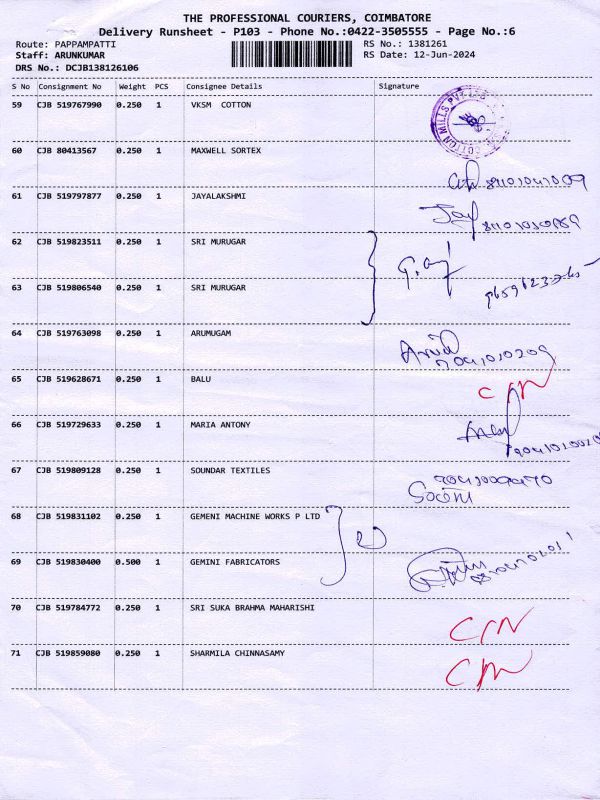 THE PROFESSIONAL COURIERS, COIMBATORE
Delivery Runsheet - P103 - Phone No.:0422-3505555 - Page No.:6
Route: PAPPAMPATTI
Staff: ARUNKUMAR
DRS No.: DCJB138126106
RS No.: 1381261
RS Date: 12-Jun-2024
S No Consignment No Weight PCS Consignee Details Signature
59 CJB 519767990 0.250 1 VKSM COTTON
60 CJB 80413567 0.250 1 MAXWELL SORTEX
61 CJB 519797877 0.250 1 JAYALAKSHMI
62 CJB 519823511 0.250 1 SRI MURUGAR
63 CJB 519806540 0.250 1 SRI MURUGAR
64 CJB 519763098 0.250 1 ARUMUGAM
65 CJB 519628671 0.250 1 BALU C/N
66 CJB 519729633 0.250 1 MARIA ANTONY
67 CJB 519809128 0.250 1 SOUNDAR TEXTILES
68 CJB 519831102 0.250 1 GEMENI MACHINE WORKS P LTD
69 CJB 519830400 0.500 1 GEMINI FABRICATORS
70 CJB 519784772 0.250 1 SRI SUKA BRAHMA MAHARISHI C/N
71 CJB 519859080 0.250 1 SHARMILA CHINNASAMY C/N